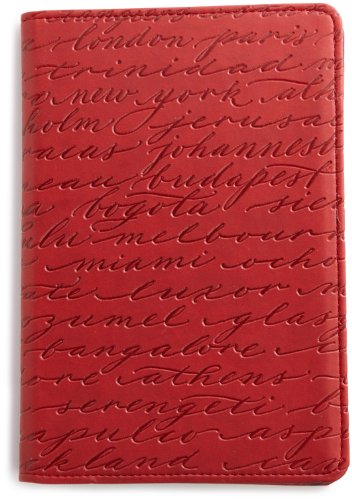 a london paris
trinidad m
o new york at
holm jerusa
racas johannesb
eau budapest
a bogota sie
lu melbour
miami ocho
ate luxor n
ozumel glas
bangalore
ore athens
serengeti b
apulco asp
ckland ca